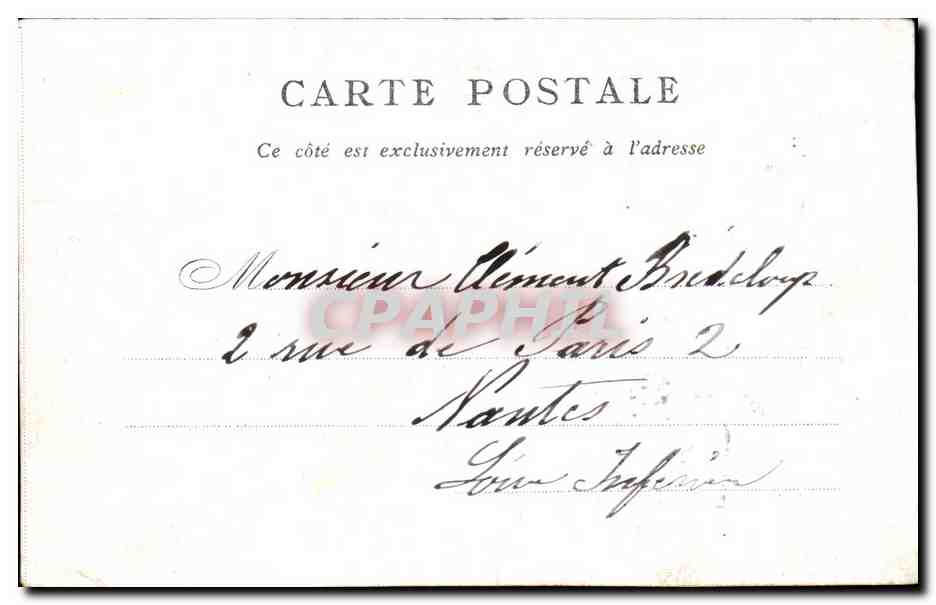 CARTE POSTALE
Ce côté est exclusivement réservé à l'adresse
Monsieur Clément Brédeloup
CPAPHIL
2 rue de Paris 2
Nantes
Loire Inférieure